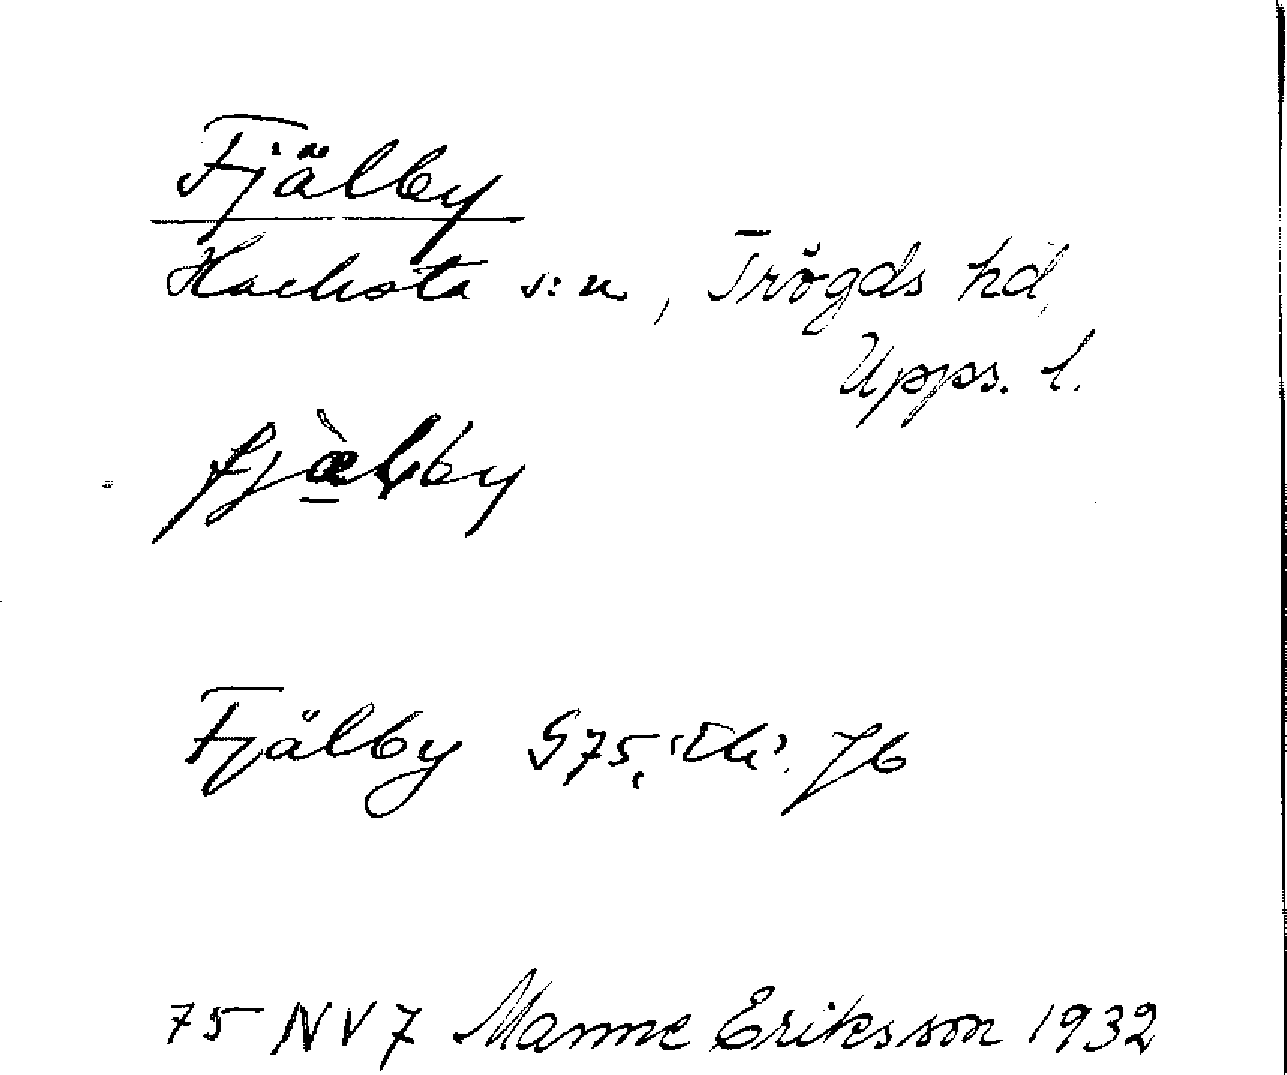 Fjälby
Hacksta s:n, Trögds hd,
Upps. l.
fjæ̀lby
Fjälby S75, Jb
75 NV7 Manne Eriksson 1932